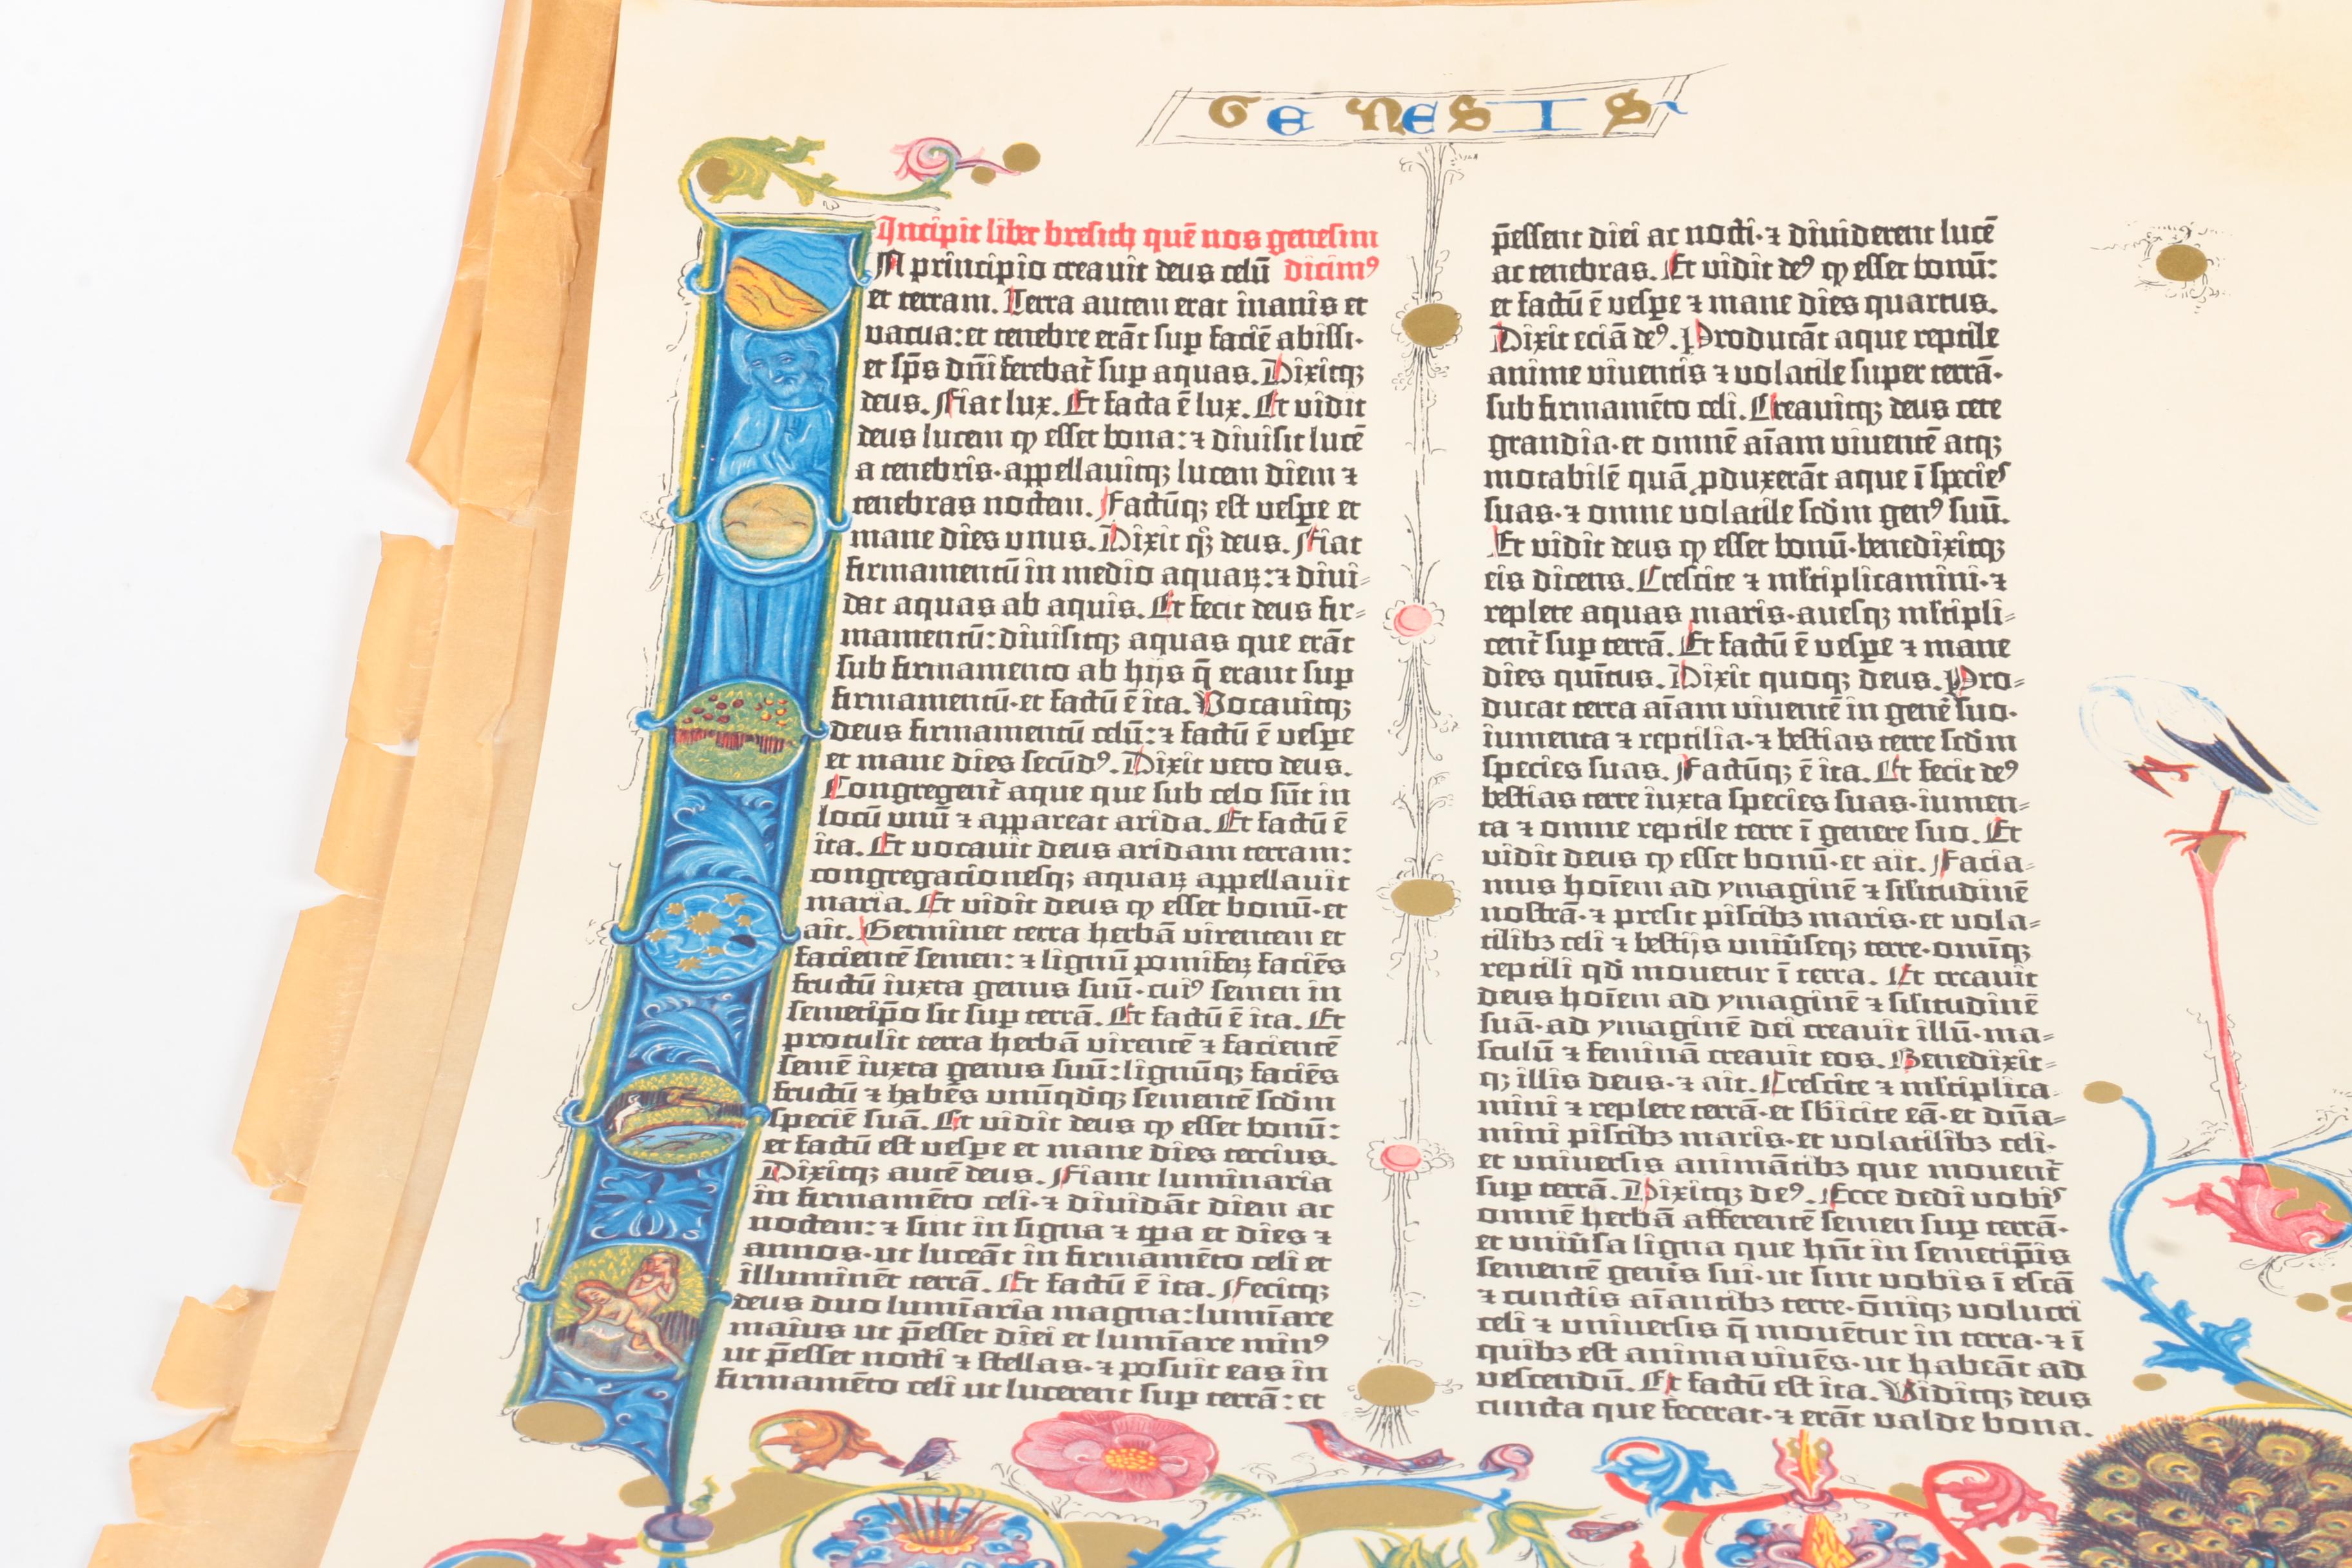 GENESIS
Incipit liber bresith quē nos genesim
A principio creavit deus celū dicimꝰ
et terram. Terra autem erat inanis et
vacua: et tenebre erāt sup faciē abissi·
et sp̄s dn̄i ferebat᷑ sup aquas. Dixitqꝫ
deus. Fiat lux. Et facta ē lux. Et vidit
deus lucem ꝙ esset bona: ⁊ divisit lucē
a tenebris· appellavitqꝫ lucem diem ⁊
tenebras noctem. Factūqꝫ est vespe et
mane dies unus. Dixit qꝫ deus. Fiat
firmamentū in medio aquaꝝ: ⁊ divi⸗
dat aquas ab aquis. Et fecit deus fir⸗
mamentū: divisitqꝫ aquas que erāt
sub firmamento ab hijs q̄ erant sup
firmamentū· et factū ē ita. Vocavitqꝫ
deus firmamentū celū: ⁊ factū ē vespe
et mane dies secūdꝰ. Dixit vero deus.
Congregent᷑ aque que sub celo sūt in
locū unū ⁊ appareat arida. Et factū ē
ita. Et vocavit deus aridam terram:
congregacionesqꝫ aquaꝝ appellavit
maria. Et vidit deus ꝙ esset bonū· et
ait. Germinet terra herbā virentem et
facientē semen: ⁊ lignū pomifeꝝ faciēs
fructū iuxta genus suū· cuiꝰ semen in
semetip̄o sit sup terrā. Et factū ē ita. Et
protulit terra herbā virentē ⁊ facientē
semē iuxta genus suū: lignūqꝫ faciēs
fructū ⁊ habēs unūqdqꝫ sementē scd̄m
speciē suā. Et vidit deus ꝙ esset bonū:
et factū est vespe et mane dies tercius.
Dixitqꝫ autē deus. Fiant luminaria
in firmamēto celi· ⁊ dividāt diem ac
noctem: ⁊ sint in signa ⁊ tp̄a et dies ⁊
annos· ut luceāt in firmamēto celi et
illuminēt terrā. Et factū ē ita. Fecitqꝫ
deus duo lumīaria magna: lumīare
maius ut p̄esset diei et lumīare minꝰ
ut p̄esset nocti ⁊ stellas· ⁊ posuit eas in
firmamēto celi ut lucerent sup terrā: et
p̄essent diei ac nocti· ⁊ dividerent lucē
ac tenebras. Et vidit deꝰ ꝙ esset bonū:
et factū ē vespe ⁊ mane dies quartus.
Dixit eciā deꝰ. Producāt aque reptile
anime viventis ⁊ volatile super terrā·
sub firmamēto celi. Creavitqꝫ deus cete
grandia· et omnē aīam viventē atqꝫ
motabilē quā ꝓduxerāt aque ī species
suas· ⁊ omne volatile scd̄m genꝰ suū.
Et vidit deus ꝙ esset bonū· benedixitqꝫ
eis dicens. Crescite ⁊ ml̄tiplicamini· ⁊
replete aquas maris· avesqꝫ ml̄tipli⸗
cent᷑ sup terrā. Et factū ē vespe ⁊ mane
dies quītus. Dixit quoqꝫ deus. Pro⸗
ducat terra aīam viventē in gene᷑ suo·
iumenta ⁊ reptilia· ⁊ bestias terre scd̄m
species suas. Factūqꝫ ē ita. Et fecit deꝰ
bestias terre iuxta species suas· iumen⸗
ta ⁊ omne reptile terre ī genere suo. Et
vidit deus ꝙ esset bonū· et ait. Facia⸗
mus hoīem ad ymaginē ⁊ sil̄itudinē
nostrā· ⁊ presit piscibꝫ maris· et vola⸗
tilibꝫ celi ⁊ bestijs univ̄seqꝫ terre· omīqꝫ
reptili qd̄ movetur ī terra. Et creavit
deus hoīem ad ymaginē ⁊ sil̄itudinē
suā· ad ymaginē dei creavit illū· ma⸗
sculū ⁊ feminā creavit eos. Benedixit⸗
qꝫ illis deus· ⁊ ait. Crescite ⁊ ml̄tiplica⸗
mini ⁊ replete terrā· et sb̄icite eā· et dn̄a⸗
mini piscibꝫ maris· et volatilibꝫ celi·
et universis animātibꝫ que movent᷑
sup terrā. Dixitqꝫ deꝰ. Ecce dedi vobis
omnē herbā afferentē semen sup terrā·
et univ̄sa ligna que hn̄t in semetip̄is
sementē genis sui· ut sint vobis ī escā
⁊ cunctis aīantibꝫ terre· ōniqꝫ volucri
celi ⁊ universis q̄ movētur in terra· ⁊ ī
quibꝫ est anima vivēs· ut habeāt ad
vescendū. Et factū est ita. Viditqꝫ deus
cuncta que fecerat· ⁊ erāt valde bona.